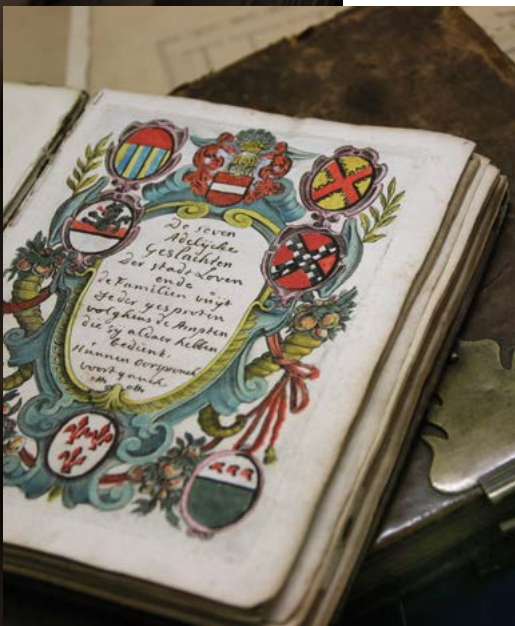 De seven
Adelijcke
Geslachten
der stadt Loven
ende
de Familien uijt
ieder gesproten
volghens de Ampten
die sy aldaer hebben
bedient.
Hunnen oorspronck
voortganck